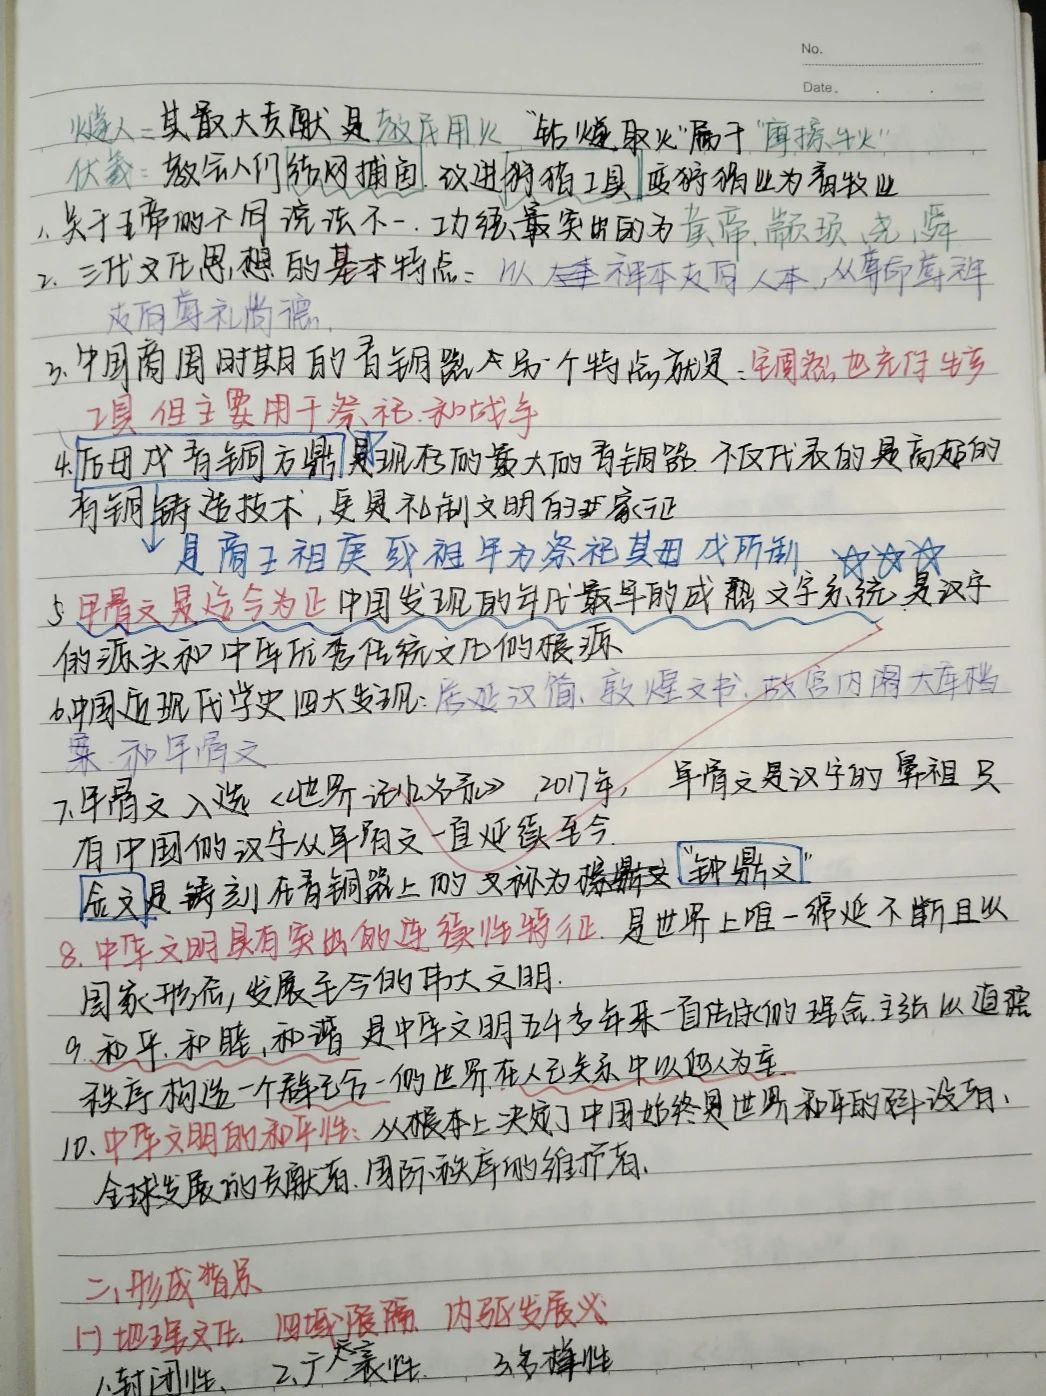 No.
Date.
燧人：其最大贡献是教民用火 "钻燧取火"属于"摩擦生火"
伏羲：教会人们结网捕鱼 改进狩猎工具 变狩猎业为畜牧业
1、关于五帝的不同说法不一、功绩最突出的为黄帝、颛顼、尧、舜
2、三代文化思想的基本特点：以神本走向人本，从尊命尊神
走向尊礼尚德.
3、中国商周时期的青铜器另一个特点就是：它周器也充作生产
工具 但主要用于祭祀、和战争
4.后母戊青铜方鼎是现存的最大的青铜器 不仅代表的是高超的
青铜铸造技术，更是礼制文明的象征
是商王祖庚或祖甲为祭祀其母戊所制
5 甲骨文是迄今为止中国发现的年代最早的成熟文字系统 是汉字
的源头和中华优秀传统文化的根源
6.中国近现代学史四大发现：居延汉简、敦煌文书、故宫内阁大库档
案、和甲骨文
7、甲骨文入选《世界记忆名录》，2017年， 甲骨文是汉字的鼻祖 只
有中国的汉字从甲骨文一直延续至今.
金文是铸刻在青铜器上的 又称为"钟鼎文"
8.中华文明具有突出的连续性特征. 是世界上唯一绵延不断且以
国家形态，发展至今的伟大文明.
9.和平、和睦、和谐 是中华文明五千多年来一直传承的理念.主张以道德
秩序构造一个群己合一的世界 在人己关系中以他人为重.
10、中华文明的和平性：从根本上决定了中国始终是世界和平的建设者、
全球发展的贡献者、国际秩序的维护者、
二、形成背景
(一)地理文化、四域限隔 内驱发展义
1、封闭性、 2、广袤性、 3、多样性